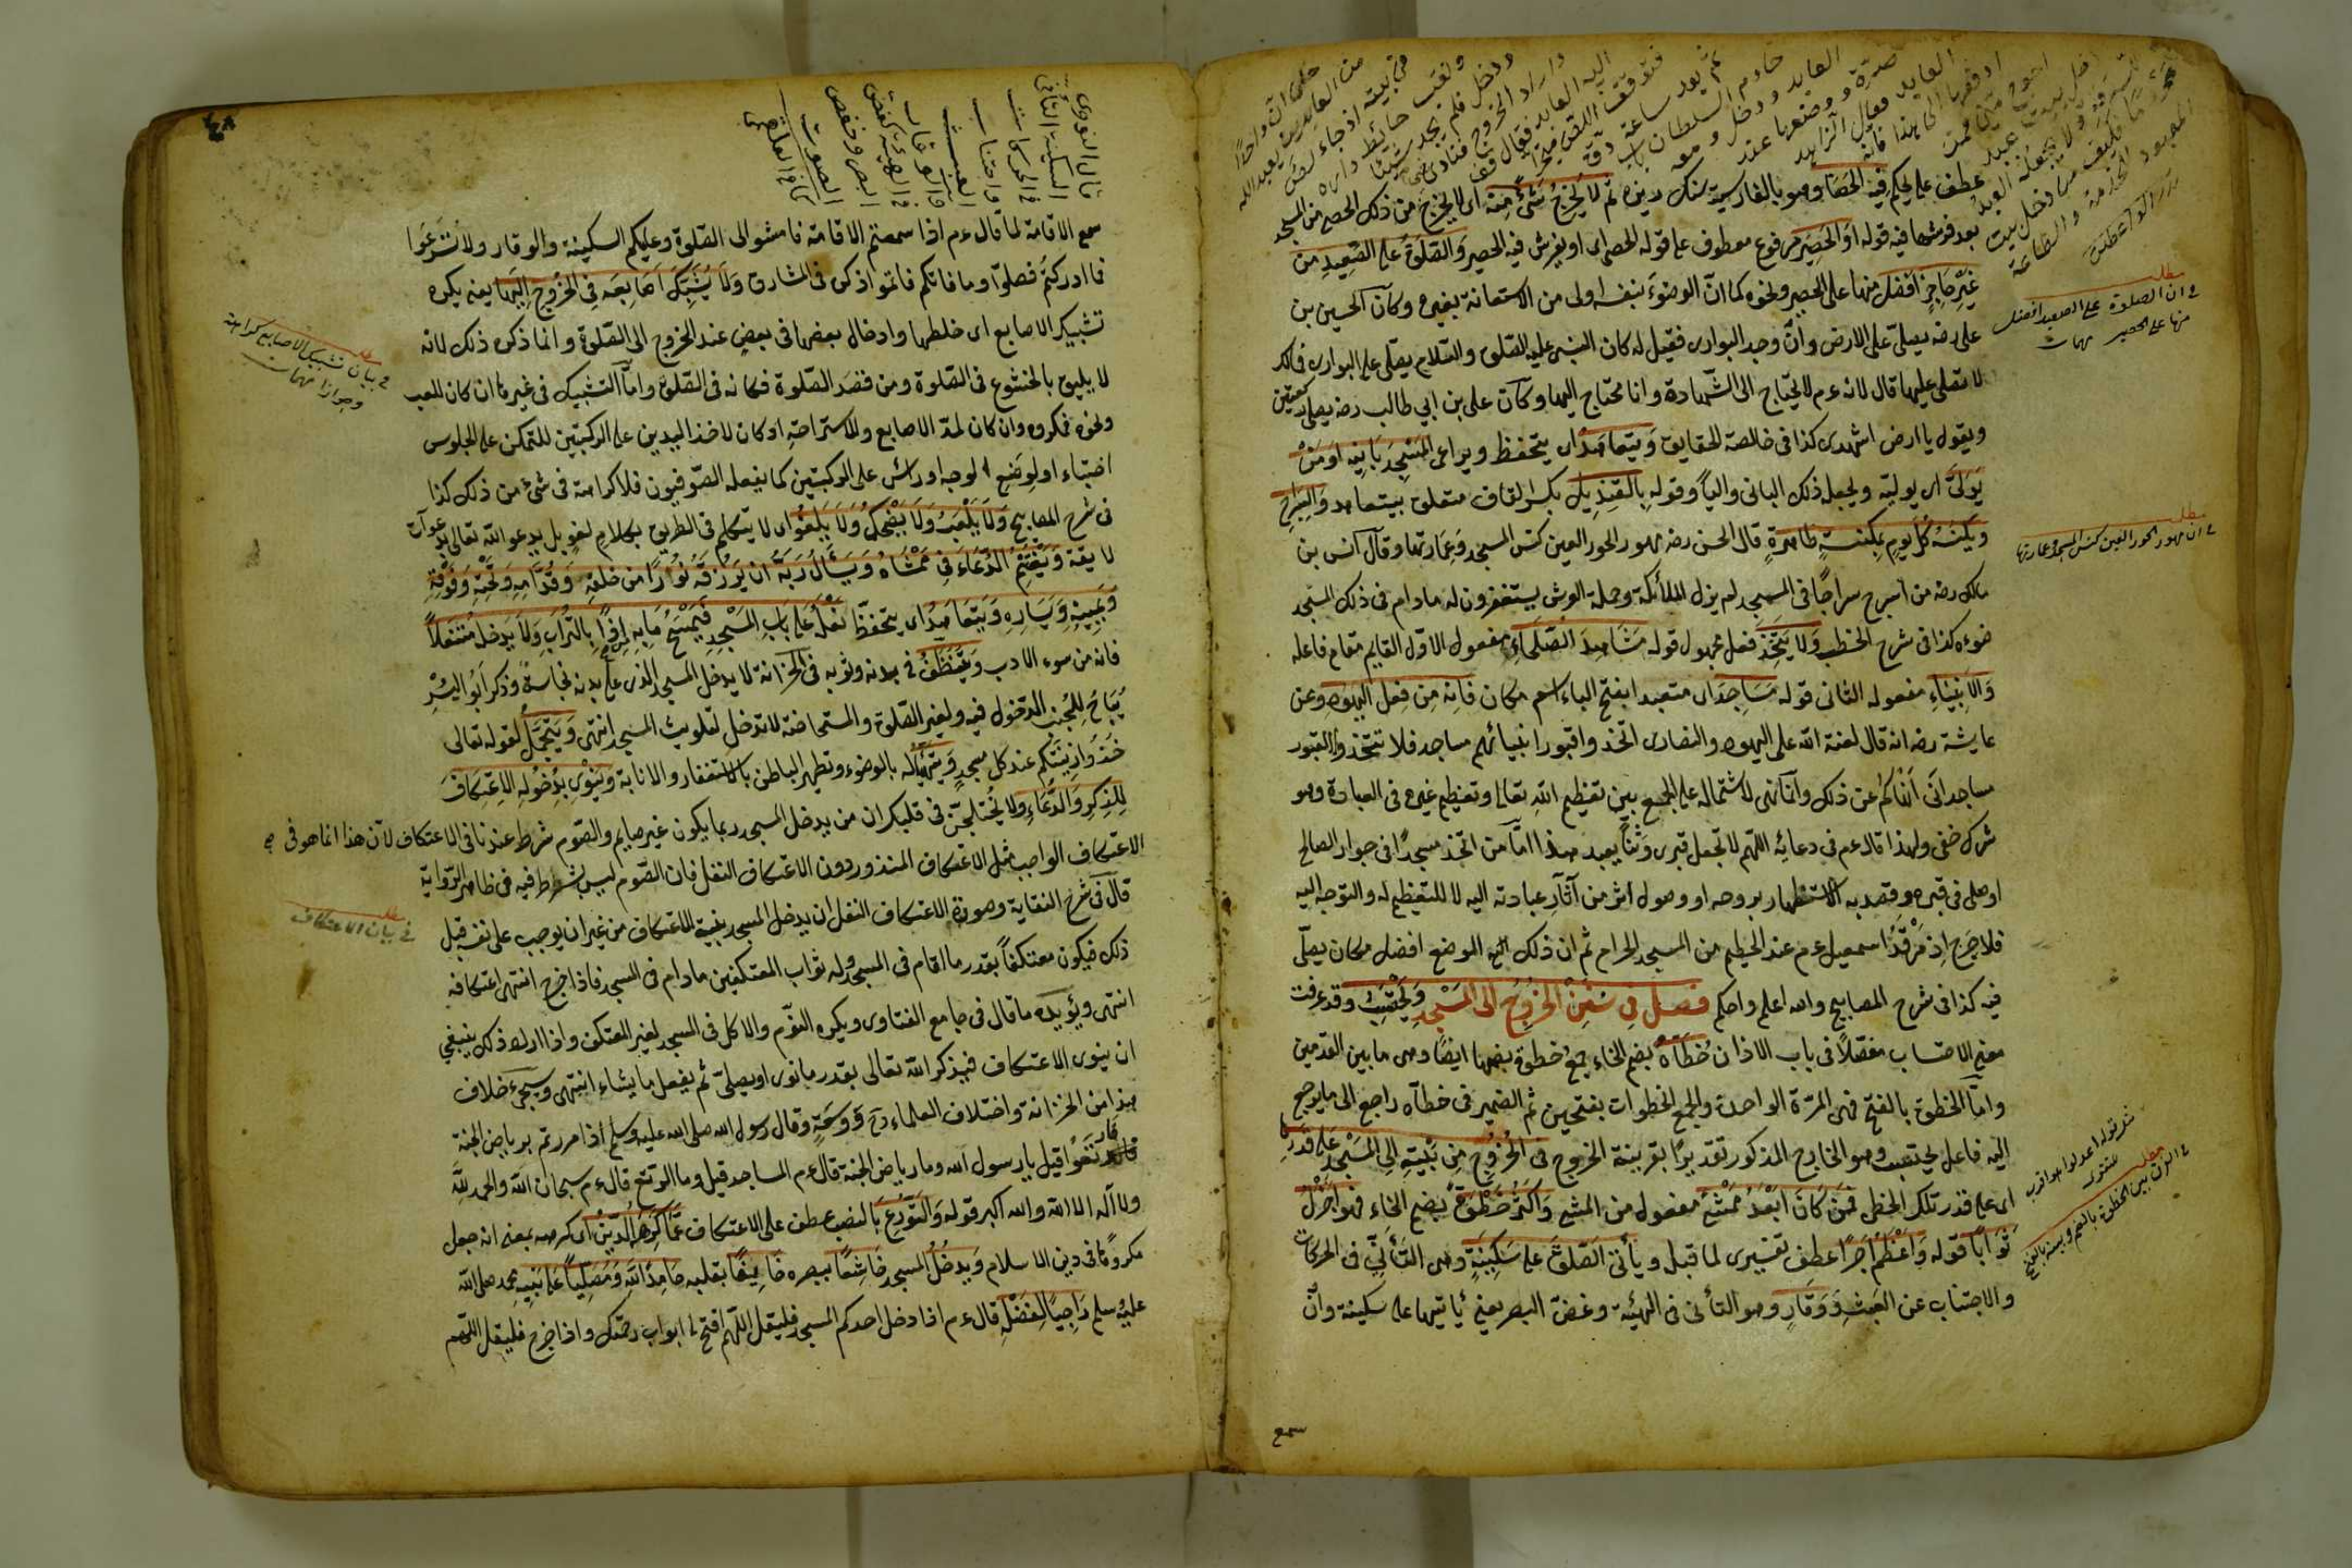 عطف على يحكم فيه الحصا وهو بالفارسية سنك ريزه ثم لا يخرج شئ منه اى لا يخرج من ذلك الحصى من المسجد
بعد فرشها فيه قوله او الحصير مرفوع معطوف على قوله الحصى اى او يفرش فيه الحصير والصلوة على الصعيد من
غير حاجز افضل منها على الحصير ونحوه كما ان الوضوء بنفسه اولى من الاستعانة بغيره وكان الحسين بن
على رضه يصلى على الارض وان وجد البوارى فقيل له كان النبى عليه الصلوة والسلام يصلى على البوارى فمالك
لا تصلى عليها قال لانه عم لا يحتاج الى الشهادة وانا محتاج اليها وكان على بن ابي طالب رضه يصلى ركعتين
ويقول يا ارض اشهدى كذا فى خالصة الحقايق ويتعاهد اى يتحفظ ويراعى المسجد بانيه او من
يولى اى يوليه ويجعله ذلك البانى واليا وقوله بالقنديل بكسر القاف متعلق بيتعاهد والسراج
ويكنسه كل يوم بمكنسة طاهرة قال الحسن رضه مهور الحور العين كنس المسجد وعمارتها وقال انس بن
مالك رضه من اسرج سراجا فى المسجد لم يزل الملائكة وحملة العرش يستغفرون له ما دام فى ذلك المسجد
ضوءه كذا فى شرح الخطب ولا يتخذ فعل مجهول قوله مشاهد الصلحاء مفعول الاول القايم مقام فاعله
والانبياء مفعوله الثانى قوله مساجد اى متعبدا بفتح الباء اسم مكان فانه من فعل اليهود وعن
عايشة رضه انه قال لعنة الله على اليهود والنصارى اتخذوا قبور انبيائهم مساجد فلا تتخذوا القبور
مساجد انى انهاكم عن ذلك وانما نهى لاشتماله على الجمع بين تعظيم الله تعالى وتعظيم غيره فى العبادة وهو
شرك خفى ولهذا قال عم فى دعائه اللهم لا تجعل قبرى وثنا يعبد هذا اما من اتخذ مسجدا فى جوار الصالح
او صلى فى قبره وقصد به الاستظهار بروحه او وصول اثر من آثار عبادته اليه لا للتعظيم له والتوجه اليه
فلا حرج اذ مرقد اسمعيل عم عند الحطيم من المسجد الحرام ثم ان ذلك الموضع افضل مكان يصلى
فيه كذا فى شرح المصابيح والله اعلم واحكم فصل فى سنن الخروج الى المسجد ويحتسب وقد عرفت
معنى الاحتساب مفصلا فى باب الاذان خطاه بضم الخاء جمع خطوة بضمها ايضا وهى ما بين القدمين
واما الخطوة بالفتح فهى المرة الواحدة والجمع الخطوات بفتحتين ثم الضمير فى خطاه راجع الى ما يرجع
اليه فاعل يحتسب وهو الخارج المذكور تقديرا بقرينة الخروج فى الخروج من بيته الى المسجد على قدرها
اى على قدر تلك الخطى فمن كان ابعد ممشى مفعول من المشى واكثر خطوة بضم الخاء فهو اجزل
ثوابا قوله واعظم اجرا عطف تفسيرى لما قبل ويأتى الصلوة على سكينة وهى التأنى فى الحركات
والاجتناب عن العبث ووقار وهو التأنى فى الهيئة وغض البصر يعنى يأتيها على سكينة وان
سمع
مطلب
فى ان الصلوة على الصعيد افضل
منها على الحصير مهمات
مطلب
فى ان مهور الحور العين كنس المسجد وعمارتها
مطلب
فى الفرق بين الخطوة بالضم وبينه بالفتح
قال النووى
السكينة التأنى
فى الحركات
واجتناب
العبث
والوقار
فى الهيئة كغض
البصر وخفض
الصوت
سمع الاقامة لما قال عم اذا سمعتم الاقامة فامشوا الى الصلوة وعليكم السكينة والوقار ولا تسرعوا
فما ادركتم فصلوا وما فاتكم فاتموا ذكر فى المشارق ولا يشبك اصابعه فى الخروج اليها يعنى يكره
تشبيك الاصابع اى خلطها وادخال بعضها فى بعض عند الخروج الى الصلوة وانما ذكره ذلك لانه
لا يليق بالخشوع فى الصلوة ومن قصد الصلوة فكانه فى الصلوة واما التشبيك فى غيرها ان كان للعب
ونحوه فمكروه وان كان لمد الاصابع وللاستراحة او كان لاخذ اليدين على الركبتين للتمكن على الجلوس
احتباء او لوضع الوجه او رأس على الركبتين كما يفعله الصوفيون فلا كراهة فى شئ من ذلك كذا
فى شرح المصابيح ولا يلعب ولا يضحك ولا يلغو اى لا يتكلم فى الطريق بكلام لغو بل يدعو الله تعالى بدعوات
لايقة ويغتنم الدعاء فى ممشاه ويسأل ربه ان يرزقه نورا من خلفه وقدامه وتحته وفوقه
ويمينه ويساره ويتعاهد اى يتحفظ نعله على باب المسجد فيمسح ما به اذى بالتراب ولا يدخل متنعلا
فانه من سوء الادب ويتنظف فى بدنه وثوبه فى الخزانة لا يدخل المسجد الذى على بدنه نجاسة وذكر ابو اليسر
يباح للجنب الدخول فيه ولغير الصلوة والمستحاضة لا تدخل لتلويث المسجد انتهى ويتجمل لقوله تعالى
خذوا زينتكم عند كل مسجد ويتهيأ له بالوضوء وتطهير الباطن بالاستغفار والانابة وينوى بدخوله الاعتكاف
للذكر والدعاء ولا يختلجن فى قلبك ان من يدخل المسجد ربما يكون غير صايم والصوم شرط عندنا فى الاعتكاف لان هذا انما هو فى
الاعتكاف الواجب مثل الاعتكاف المنذور دون الاعتكاف النفل فان الصوم ليس بشرط فيه فى ظاهر الرواية
قال فى شرح النقاية وصورة الاعتكاف النفل ان يدخل المسجد بنية الاعتكاف من غير ان يوجب على نفسه قبل
ذلك فيكون معتكفا بقدر ما اقام فى المسجد وله ثواب المعتكفين ما دام فى المسجد فاذا خرج انتهى اعتكافه
انتهى ويؤيده ما قال فى جامع الفتاوى ويكره النوم والاكل فى المسجد لغير المعتكف واذا اراد ذلك ينبغى
ان ينوى الاعتكاف فيذكر الله تعالى بقدر ما نوى او يصلى ثم يفعل ما يشاء انتهى وسيجئ خلاف
هذا من الخزانة واختلاف العلماء وسعة وقال رسول الله صلى الله عليه وسلم اذا مررتم برياض الجنة
فارتعوا قيل يا رسول الله وما رياض الجنة قال عم المساجد قيل وما الرتع قال عم سبحان الله والحمد لله
ولا اله الا الله والله اكبر قوله والتورع بالنصب عطف على الاعتكاف عما كرهه الدين اى كرهه بمعنى انه جعل
مكروها فى دين الاسلام ويدخل المسجد خاشعا ببصره خايفا بقلبه حامدا لله ومصليا على نبيه محمد صلى الله
عليه وسلم راجيا لفضله قال عم اذا دخل احدكم المسجد فليقل اللهم افتح لى ابواب رحمتك واذا خرج فليقل اللهم
مطلب
فى بيان تشبيك الاصابع كراهة
وجوازا مهمات
مطلب
فى بيان الاعتكاف